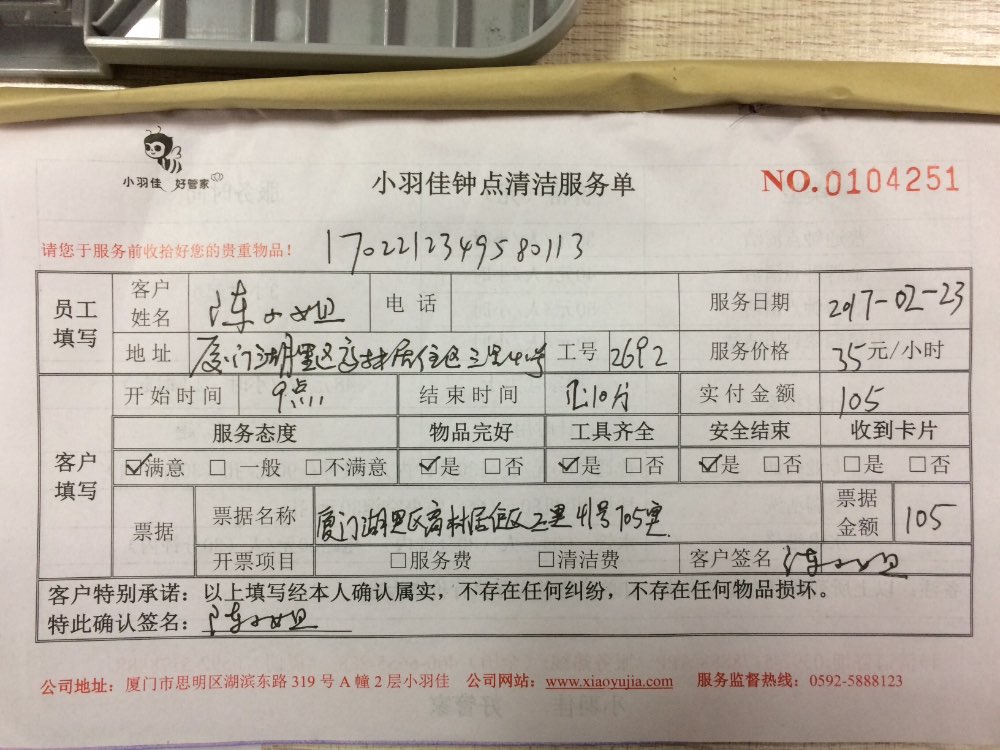 小羽佳 好管家
小羽佳钟点清洁服务单
NO.0104251
请您于服务前收拾好您的贵重物品！
1702212349580113
员工填写 客户姓名 陈小姐 电话 服务日期 2017-02-23
地址 厦门湖里区 居住区三里 工号 2692 服务价格 35元/小时
客户填写 开始时间 9点 结束时间 10分 实付金额 105
服务态度 物品完好 工具齐全 安全结束 收到卡片
☑满意 □一般 □不满意 ☑是 □否 ☑是 □否 ☑是 □否 □是 □否
票据 票据名称 厦门湖里区 村居住区三里41号705 票据金额 105
开票项目 □服务费 □清洁费 客户签名 陈小姐
客户特别承诺：以上填写经本人确认属实，不存在任何纠纷，不存在任何物品损坏。
特此确认签名：陈小姐
公司地址：厦门市思明区湖滨东路 319 号 A 幢 2 层小羽佳 公司网站：www.xiaoyujia.com 服务监督热线：0592-5888123